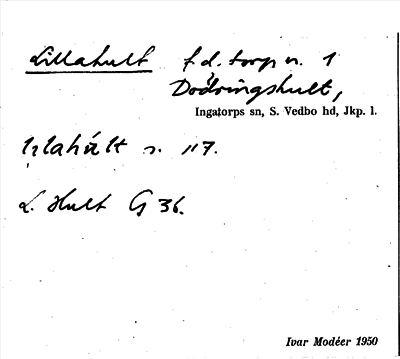 Lillahult f.d. torp u. 1
Dödringshult,
Ingatorps sn, S. Vedbo hd, Jkp. l.
s. 117.
L. Hult G 36.
Ivar Modéer 1950